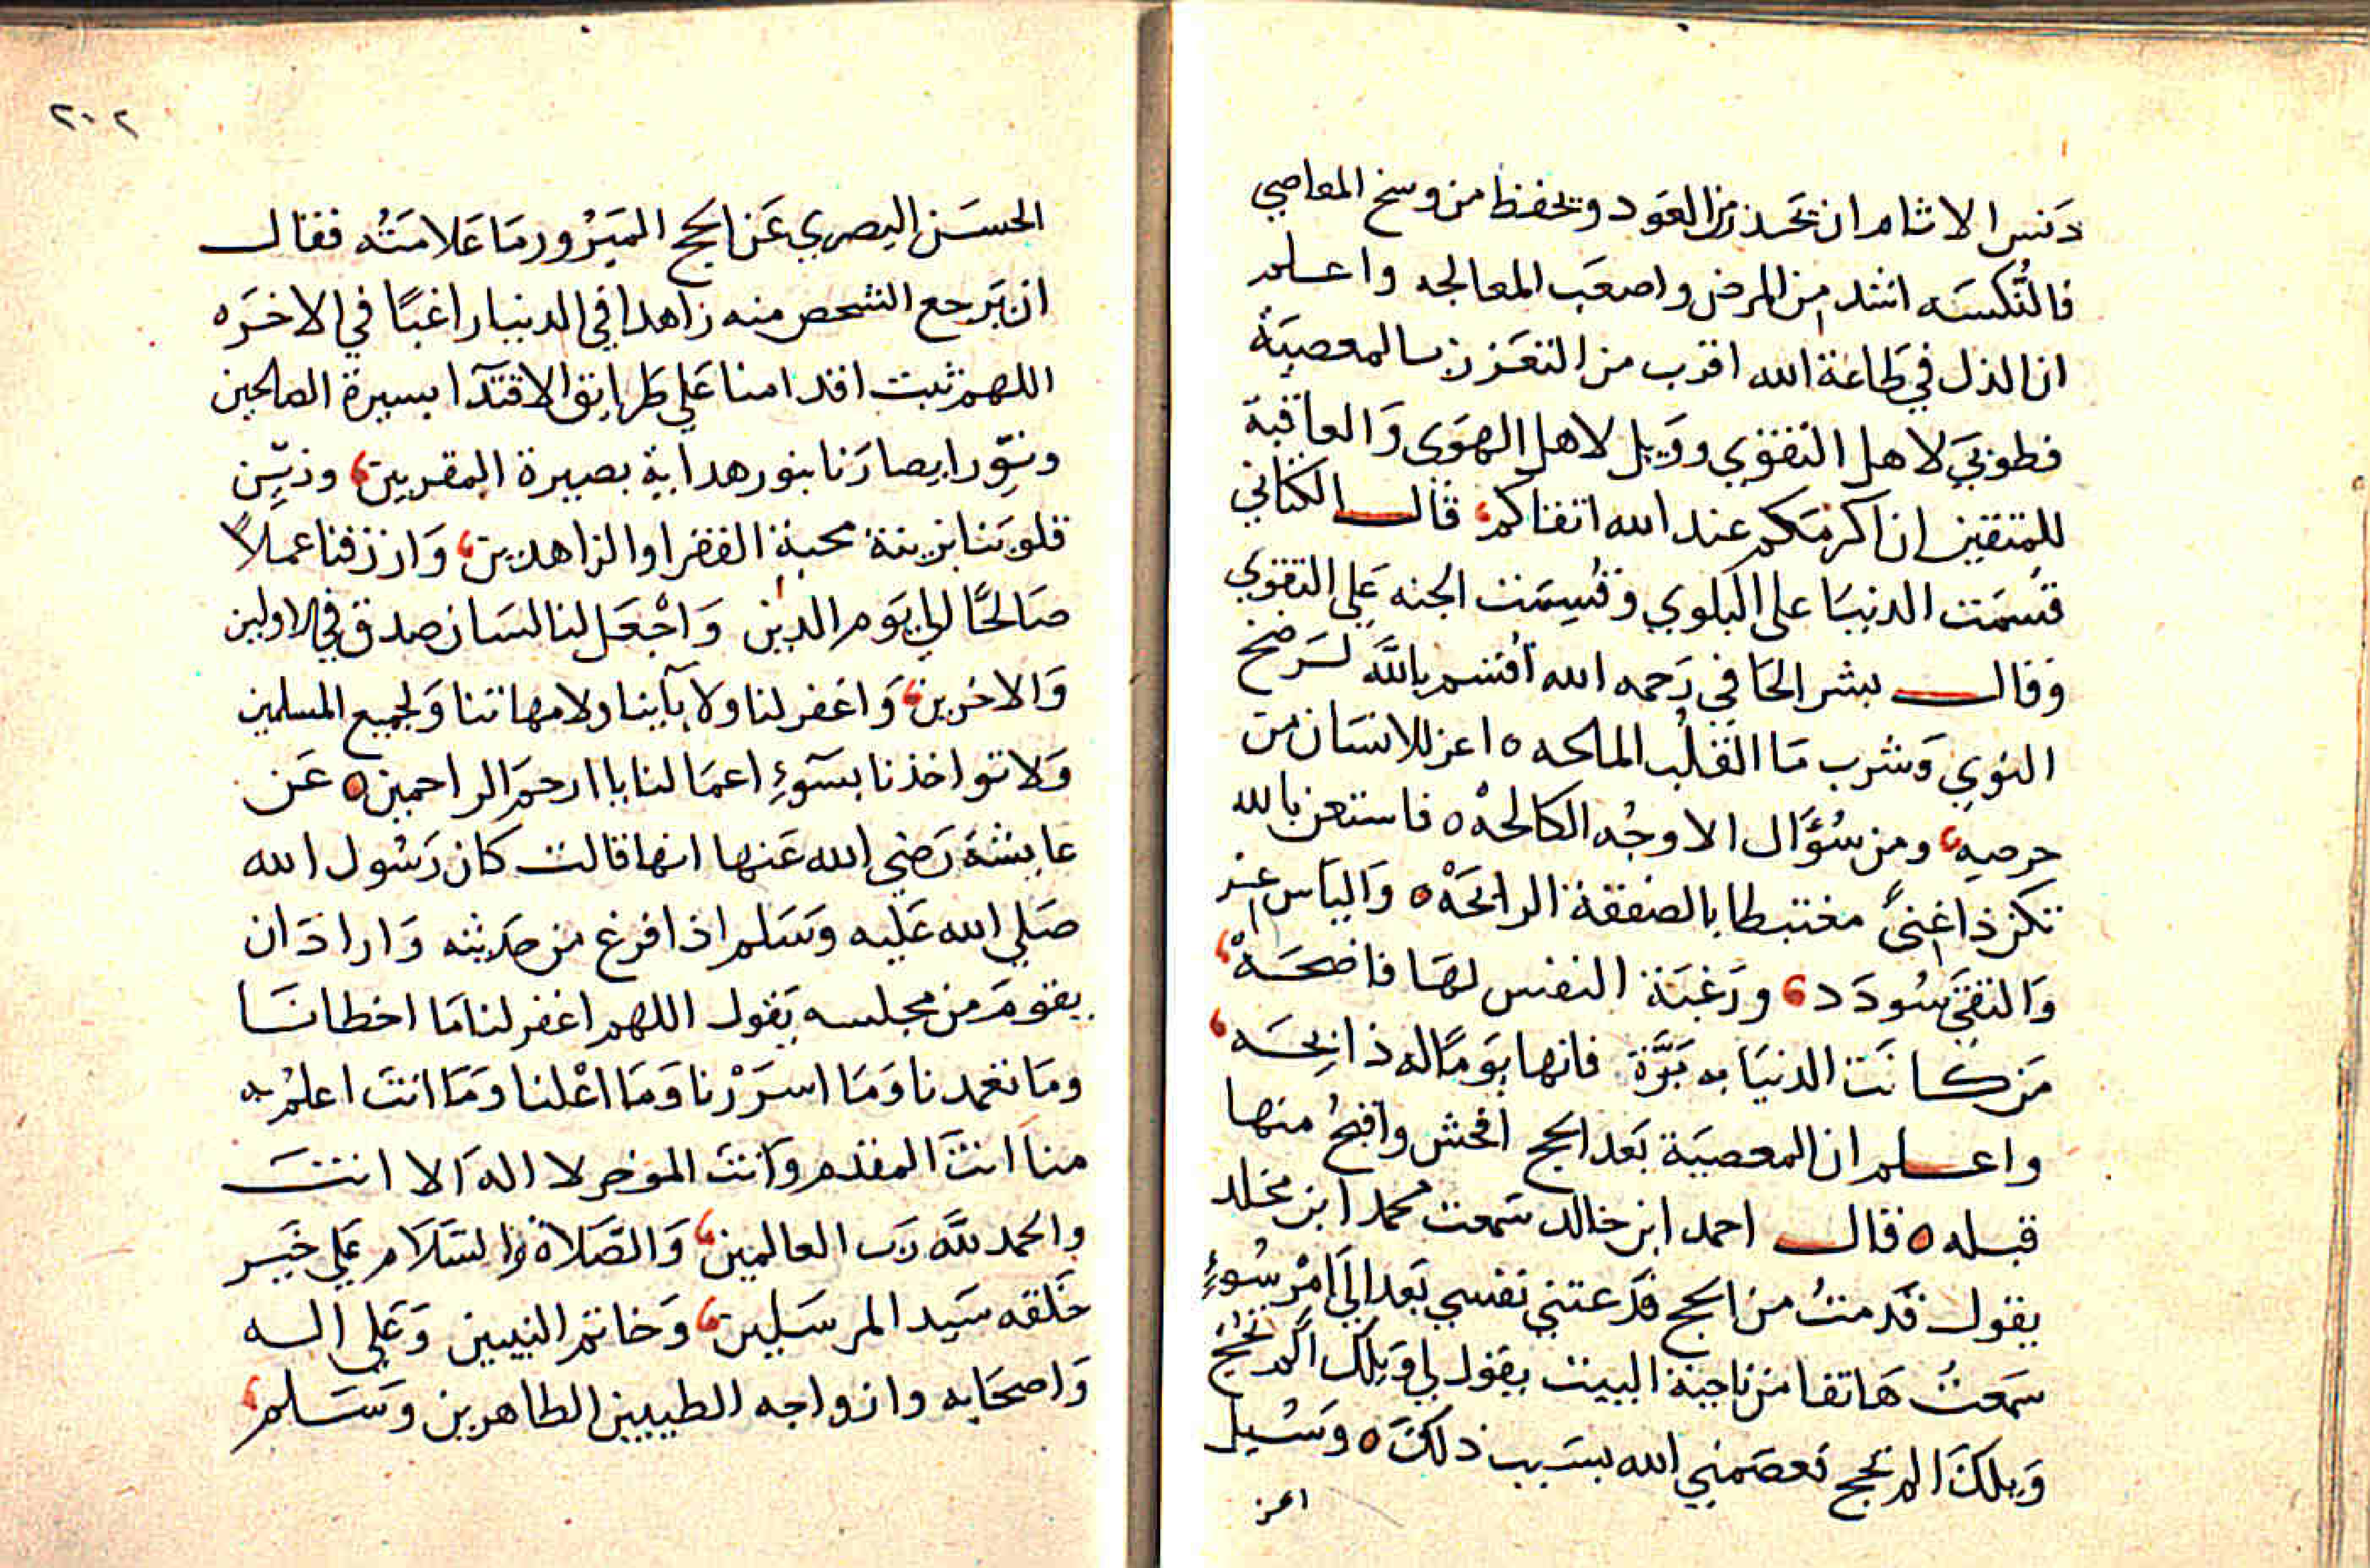 دَنس الاثام ان يَحَذر من العَود و يحفظ من وسخ المعاصي
فالنُّكسَه اشد من المرض واصعَب المعالجه واعلم
ان الذل في طَاعَة الله اقرب من التعَزز بالمعصيَة
فطوبَي لاهل التقوي ووَيل لاهل الهوَي وَالعاقبة
للمتقين ان اكرمَكم عند الله اتقاكم، قال الكتاني
قسمَت الدنيَا على البلوي وقُسِمَت الجنه عَلي التقوي
وقال بشر الحَافي رَحمه الله اُقسم باللَّه لَرَضخ
النوي وَشرب مَا القُلُب المالحه ٥ اعز للانسَان من
حرصه، ومن سُؤَال الاوجُه الكالحهْ ٥ فاستعن بالله
تكن ذا غِنيً مغتبطا بالصفقة الرابحَهْ ٥ وَاليَاس عز
وَالتقَي سُودَد، ورَغبَة النفس لهَا فاضحَهْ،
مَن كانَت الدنيَا به بَرَّة فانها يَومًا له ذابحَه،
واعلم ان المعصيَة بَعد الحج افحش واقبحُ منها
قبله ٥ قال احمد ابن خالد سَمعت محمد ابن مخلد
يقول قَدمتُ من الحج فدَعتني نفسي بَعد الَي امْر سُوءٍ
سَمعتُ هَاتفا من ناحيَة البيت يقول لي وَيلك الَم تحُج
وَيلكَ الم تحج فعصَمني الله بسَبب ذلكَ ٥ وسُيل
الحسَن البصري عَن الحج المَبَرْور مَا عَلامَتُه فقال
ان يَرجع الشخص منه زاهدا في الدنيا راغبًا في الاخَره
اللهم ثبت اقدامنا عَلي طرايق الاقتدَآ بسيرة الصالحين
ونوِّر ابصارَنا بنور هدايَة بصيرة المقربين، وزيِّن
قلوبَنا بزينة محبة الفقرا والزاهدين، وَارزقنا عملاً
صَالحًا الي يَوم الدين وَاجْعَل لنا لسَان صدق في الاولين
وَالاخرين، وَاغفر لنا ولابآينا ولامهاتنا وَلجميع المسلمين
وَلا تواخذنا بسَوءِ اعمَالنا يا ارحمَ الراحمين ٥ عَن
عايشَة رَضي الله عَنها انها قالت كان رَسُول الله
صَلي الله عَليه وسَلم اذا فرغ من حَديثه وَارادَ ان
يقومَ من مجلسه يَقول اللهم اغفر لنا مَا اخطانَا
ومَا تعمدنا وَمَا اسرَرْنا وَمَا اعْلنا وَمَا انتَ اعلمُ به
منا انتَ المقدم وَانتَ الموخر لا الهَ الا انتَ
والحمد للَّه رَب العالمين، وَالصَّلاة وَالسَّلاَم عَلي خَير
خَلقه سَيد المرسَلين، وَخاتم النبيين وَعَلي اله
وَاصحَابه وازواجه الطيبين الطاهرين وَسَلم،
٢٠٢